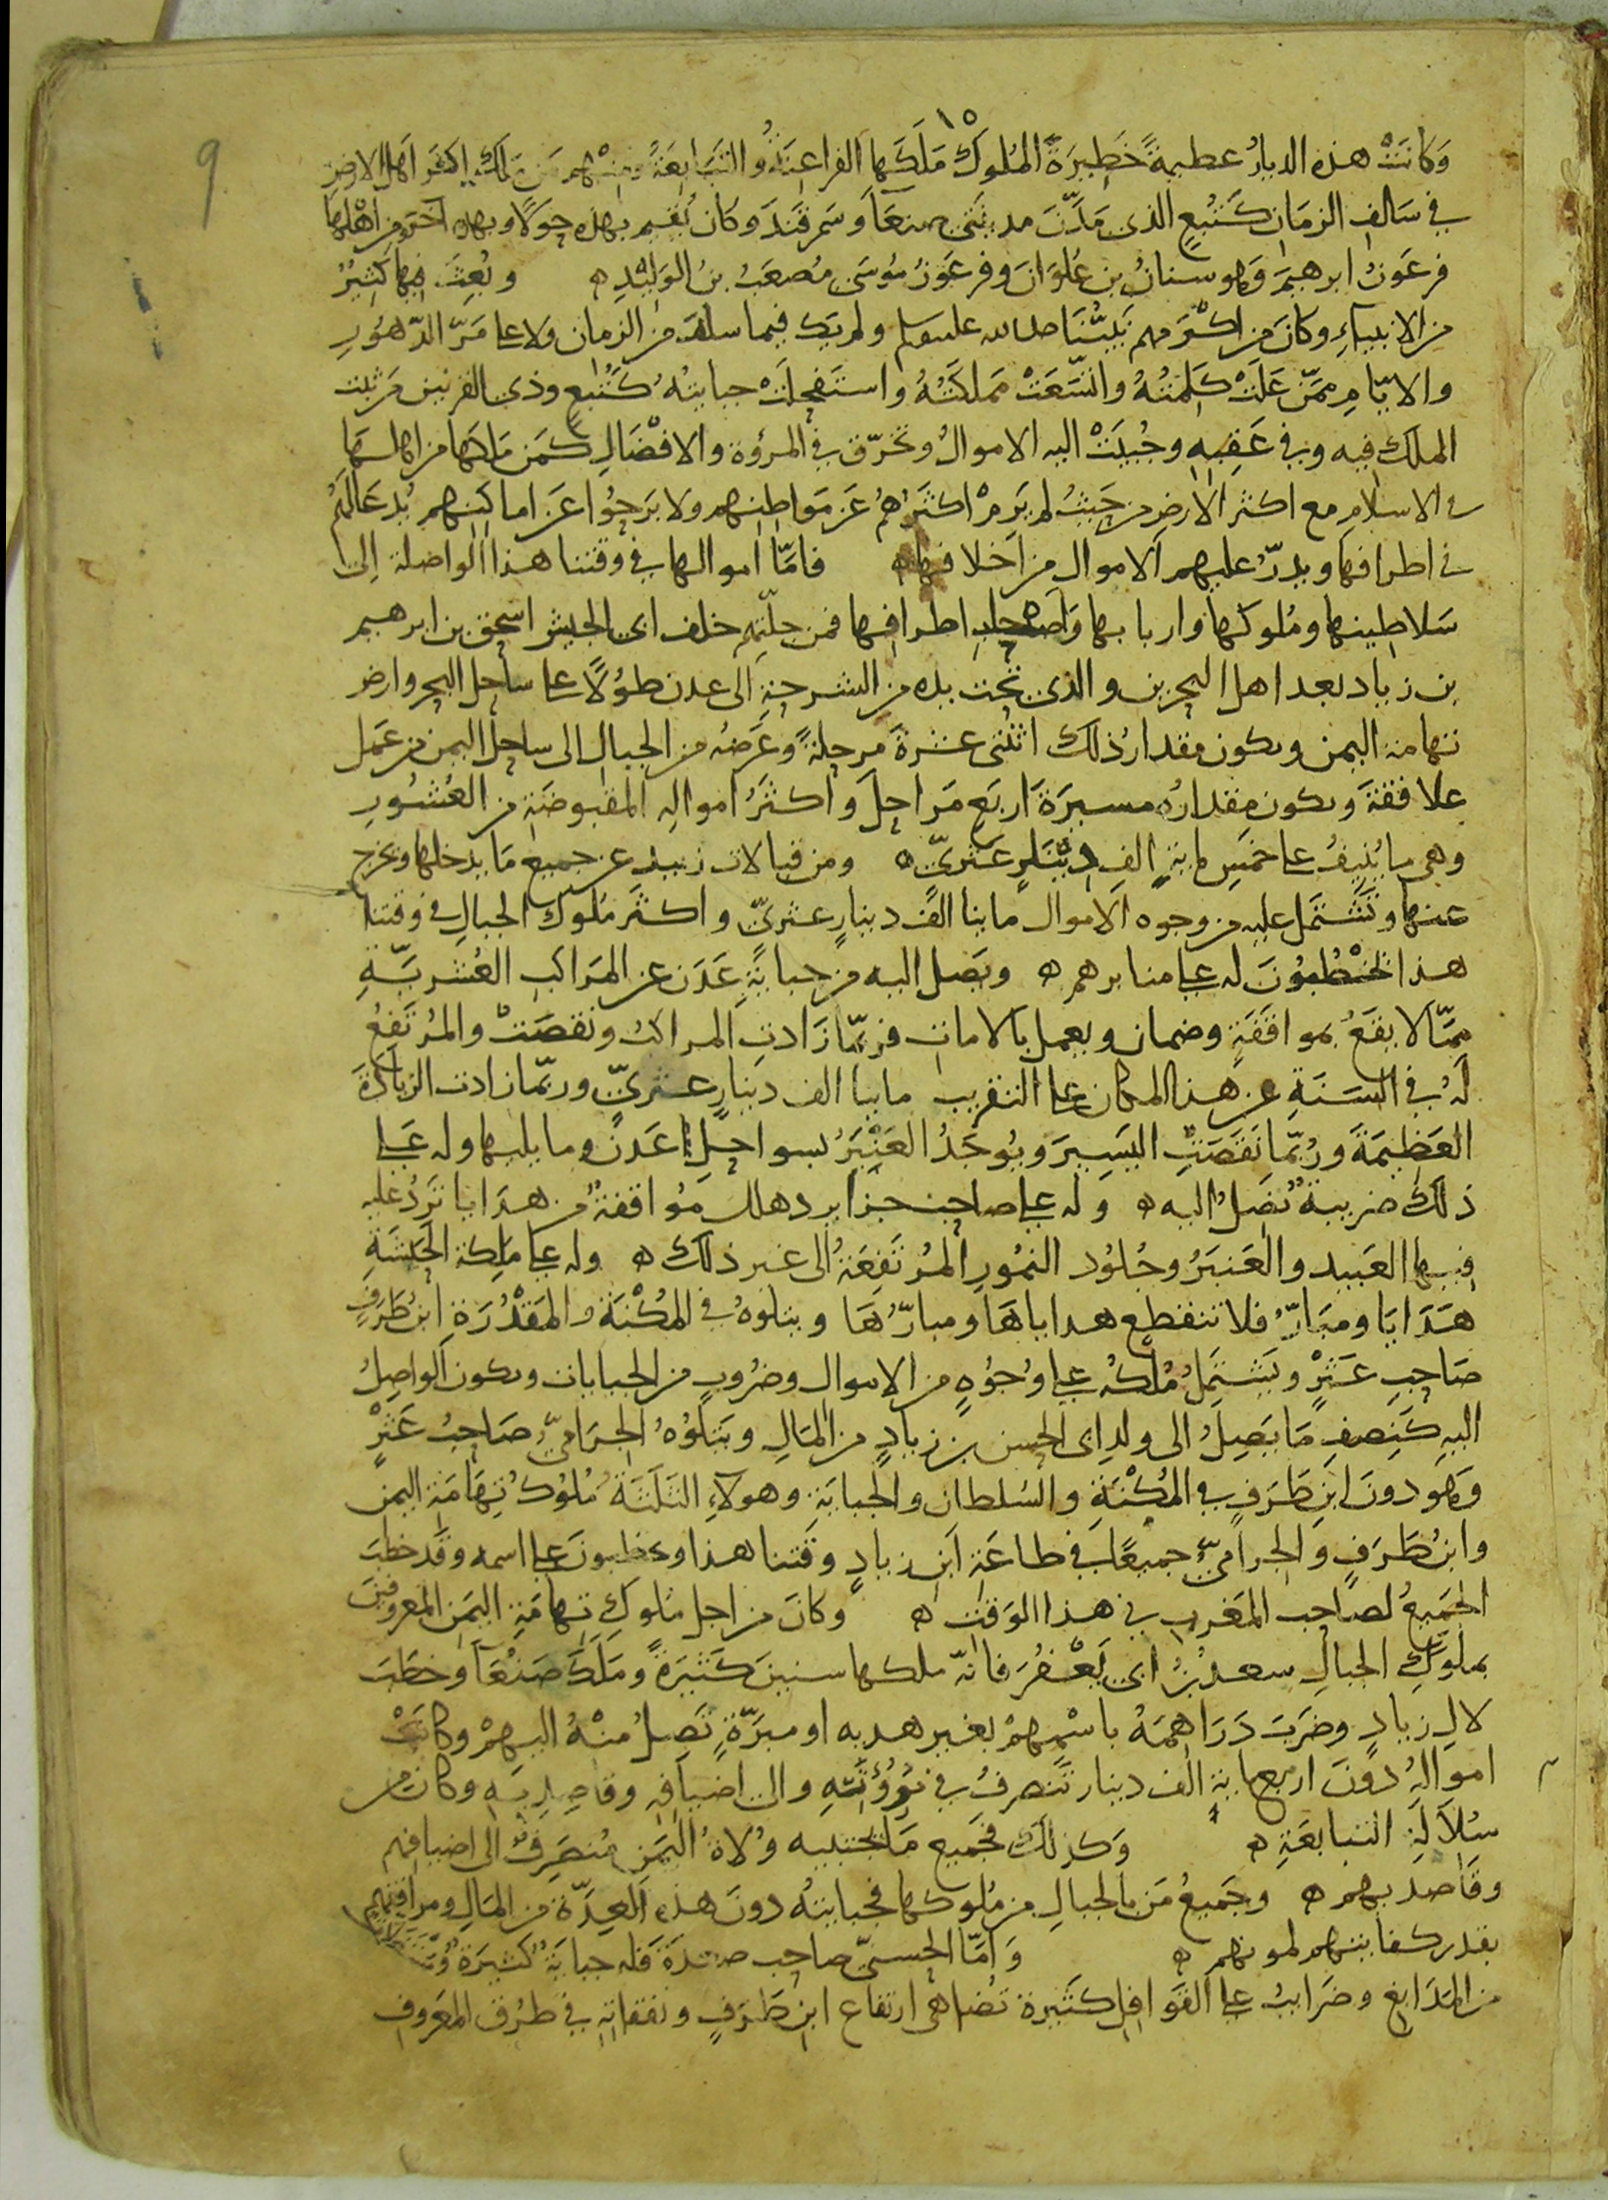 ١٥
9
وَكانَتْ هذه الديارُ عظيمةً خَطِيرَةَ المُلوك مَلَكَها الفراعِنَةُ والتَبَابِعَةُ ومنهم مَن مَلك اكثر اهل الارض
في سَالف الزمَان كَتُبّعٍ الذى مَدّنَ مدينتى صنعَآ وسَمرقَند وكان يُقيم بهذه حِوَلًا وبهذه آخَر ومن اهْلها
فرعَونُ ابرهيمَ وَهو سنانُ بن عُلوَانَ وفرعَونُ مُوسَى مُصعَبُ بنُ الوَليدِ ه وبُعِثَ فيها كثيرٌ
من الانبياءِ وكانَ من اكثرهم نَبيُّنَا صلى الله عليه وسلم ولم يَك فيما سلف من الزمان ولا على مَرّ الدّهُورِ
والايّامِ ممَّن عَلَتْ كَلمتُهُ واتّسَعَتْ مَملكَتُهُ واستَفحَلَتْ جبايتُهُ كَتُبّع وذى القرنين مَن ثبت
الملك فيه وفي عَقِبِهِ وجُبيَتْ اليه الاموالُ وتخرّق في المرُؤة والافْضَالِ كَمَن مَلَكَها من اهلها
في الاسلامِ مع اكثر الارضِ من حَيثُ لم يَرِمْ اكثَرُهُم عَن مَواطِنهم ولا بَرحُوا عَن اماكِنهم بُدعَا لَهُم
في اطرافها ويدرّ عليهم الاموال من اخلافها ه فامّا اموالها في وقتنا هذا الواصلة الى
سَلاطِينها ومُلوكها واربابها وَاصحَابِ اطرافها فمن جلّتِهِم خلف ابى الجيش اسحق بن ابرهيم
بن زياد بعد اهل البحرين والذى تحت يده من الشرجة الى عدن طُولًا على ساحل البحر وارض
تهامة اليمن ويكون مقدارُ ذلك اثنتى عشرةَ مرحلةً وعَرضُه من الجبال الى ساحل اليمن من عَمَل
غلافقةَ ويكون مقدارُه مسيرَةَ اربَعِ مَراحِلَ وَاكثَرُ اموالِه المقبوضَةِ من العُشُورِ
وهي ما يُنيفُ على خمَسِ مايةِ الفِ دِينَارٍ عَثرىّ ه ومن قبالات زبيد عن جميع مَا يدخلها ويخرج
عنها وتَشتَمل عليه من وجوه الاموال مايتا الف دينارٍ عثرىّ واكثر مُلوك الجبالِ في وقتنا
هذا يَخْطُبُونَ له على منابرهم ه ويَصل اليه من جبايَةِ عَدَن عن المراكب العُشريَّةِ
مِمّا لا يقَعُ بموافَقَةٍ وضمان ويعمل بالامانات فربّما زَادتِ المراكبُ ونقصَتْ والمُرتَفعُ
لَهُ في السَنَةِ عن هذا المكان على التقريب مايتا الف دينارٍ عثرىّ وربّما زادت الزيادَةَ
العَظِيمَةَ ورُبّما نَقَصَتِ اليَسِيرَ ويُوجَدُ العَنْبَرُ بسواحِلِ عَدن وما يليها وله عَلى
ذلك ضريبةٌ تَصَلُ اليه ه وله على صاحب جزاير دهلك مُوافقةٌ من هدَايا تَرِدُ عليه
فيها العَبيد والعَنبَرُ وجُلوُد النمُورِ المُرتَفِعَةُ الى غير ذلك ه وله على مَلِكة الحَبَشَةِ
هَدَايَا ومبَارّ فلا تنقطع هداياهَا ومبارُّهَا ويتلوهُ في المُكْنَةِ والمَقْدُرَةِ ابنُ طَرَفٍ
صَاحِبِ عَثْرٍ ويَشتَمِلُ مُلكُه على وُجُوهٍ من الاموال وضُروبٍ من الجبايات ويكون الواصِلُ
اليهِ كَنِصفِ مَا يَصِلُ الى ولدِ ابى الحسن بن زيادٍ من المَالِ ويَتلوُهُ الجرَامىُّ صَاحبُ عَثْرٍ
وَهو دونَ ابنِ طَرَفٍ في المُكنَةِ والسُلطانِ والجبايَةِ وهولآءِ الثَلثَةُ مُلوُك تهَامَةِ اليمن
وابنُ طَرَفٍ وَالجرامىُّ جميعًا في طاعَةِ ابن زيادٍ وقَتنا هذا ويخطبونَ على اسمه وقَد خطبَ
الجَميعُ لصاحب المغرب في هذا الوَقت ه وكانَ من اجلِ مُلوكِ تهامَةِ اليمَن المعروفين
بملوك الجبالِ سعدُ بنُ ابى يَعْفُرَ فانّه ملكها سنينَ كَثيرَةً ومَلَكَ صَنْعَآ وخطَبَ
لآلِ زيادٍ وضَرَبَ دَرَاهمَهُ باسْمِهمْ بغير هديه او مبَرّةٍ تَصِلُ منْهُ اليهِمْ وكانَتْ
اموَالهُ دُونَ اربع مايةِ الف دينار تَتَصرفُ في مُرُؤَتِهِ والى اضيافهِ وقاصِديهِ وكان من
سُلاَلَةِ التبابعَةِ ه وكذلك فجَميع مَا تجتبيه وُلاةُ اليَمَنِ مُنصَرفٌ الى اضيافهم
وقاصديهم ه وجميعُ مَن بالجبالِ من مُلوكها فجبايتُهُ دونَ هذه العِدّة من المَالِ ومرافقهم
بقدر كفايتهم لمونهم ه وَامّا الحسنىُّ صاحب صعدَةَ فله جبايَةٌ كثيرَةٌ
من المَدَابغِ وضَرايبُ على القَوافِلِ كثيرة تُضاهى ارتفاع ابن طَرَفٍ ونفقاته في طُرُق المعَروف